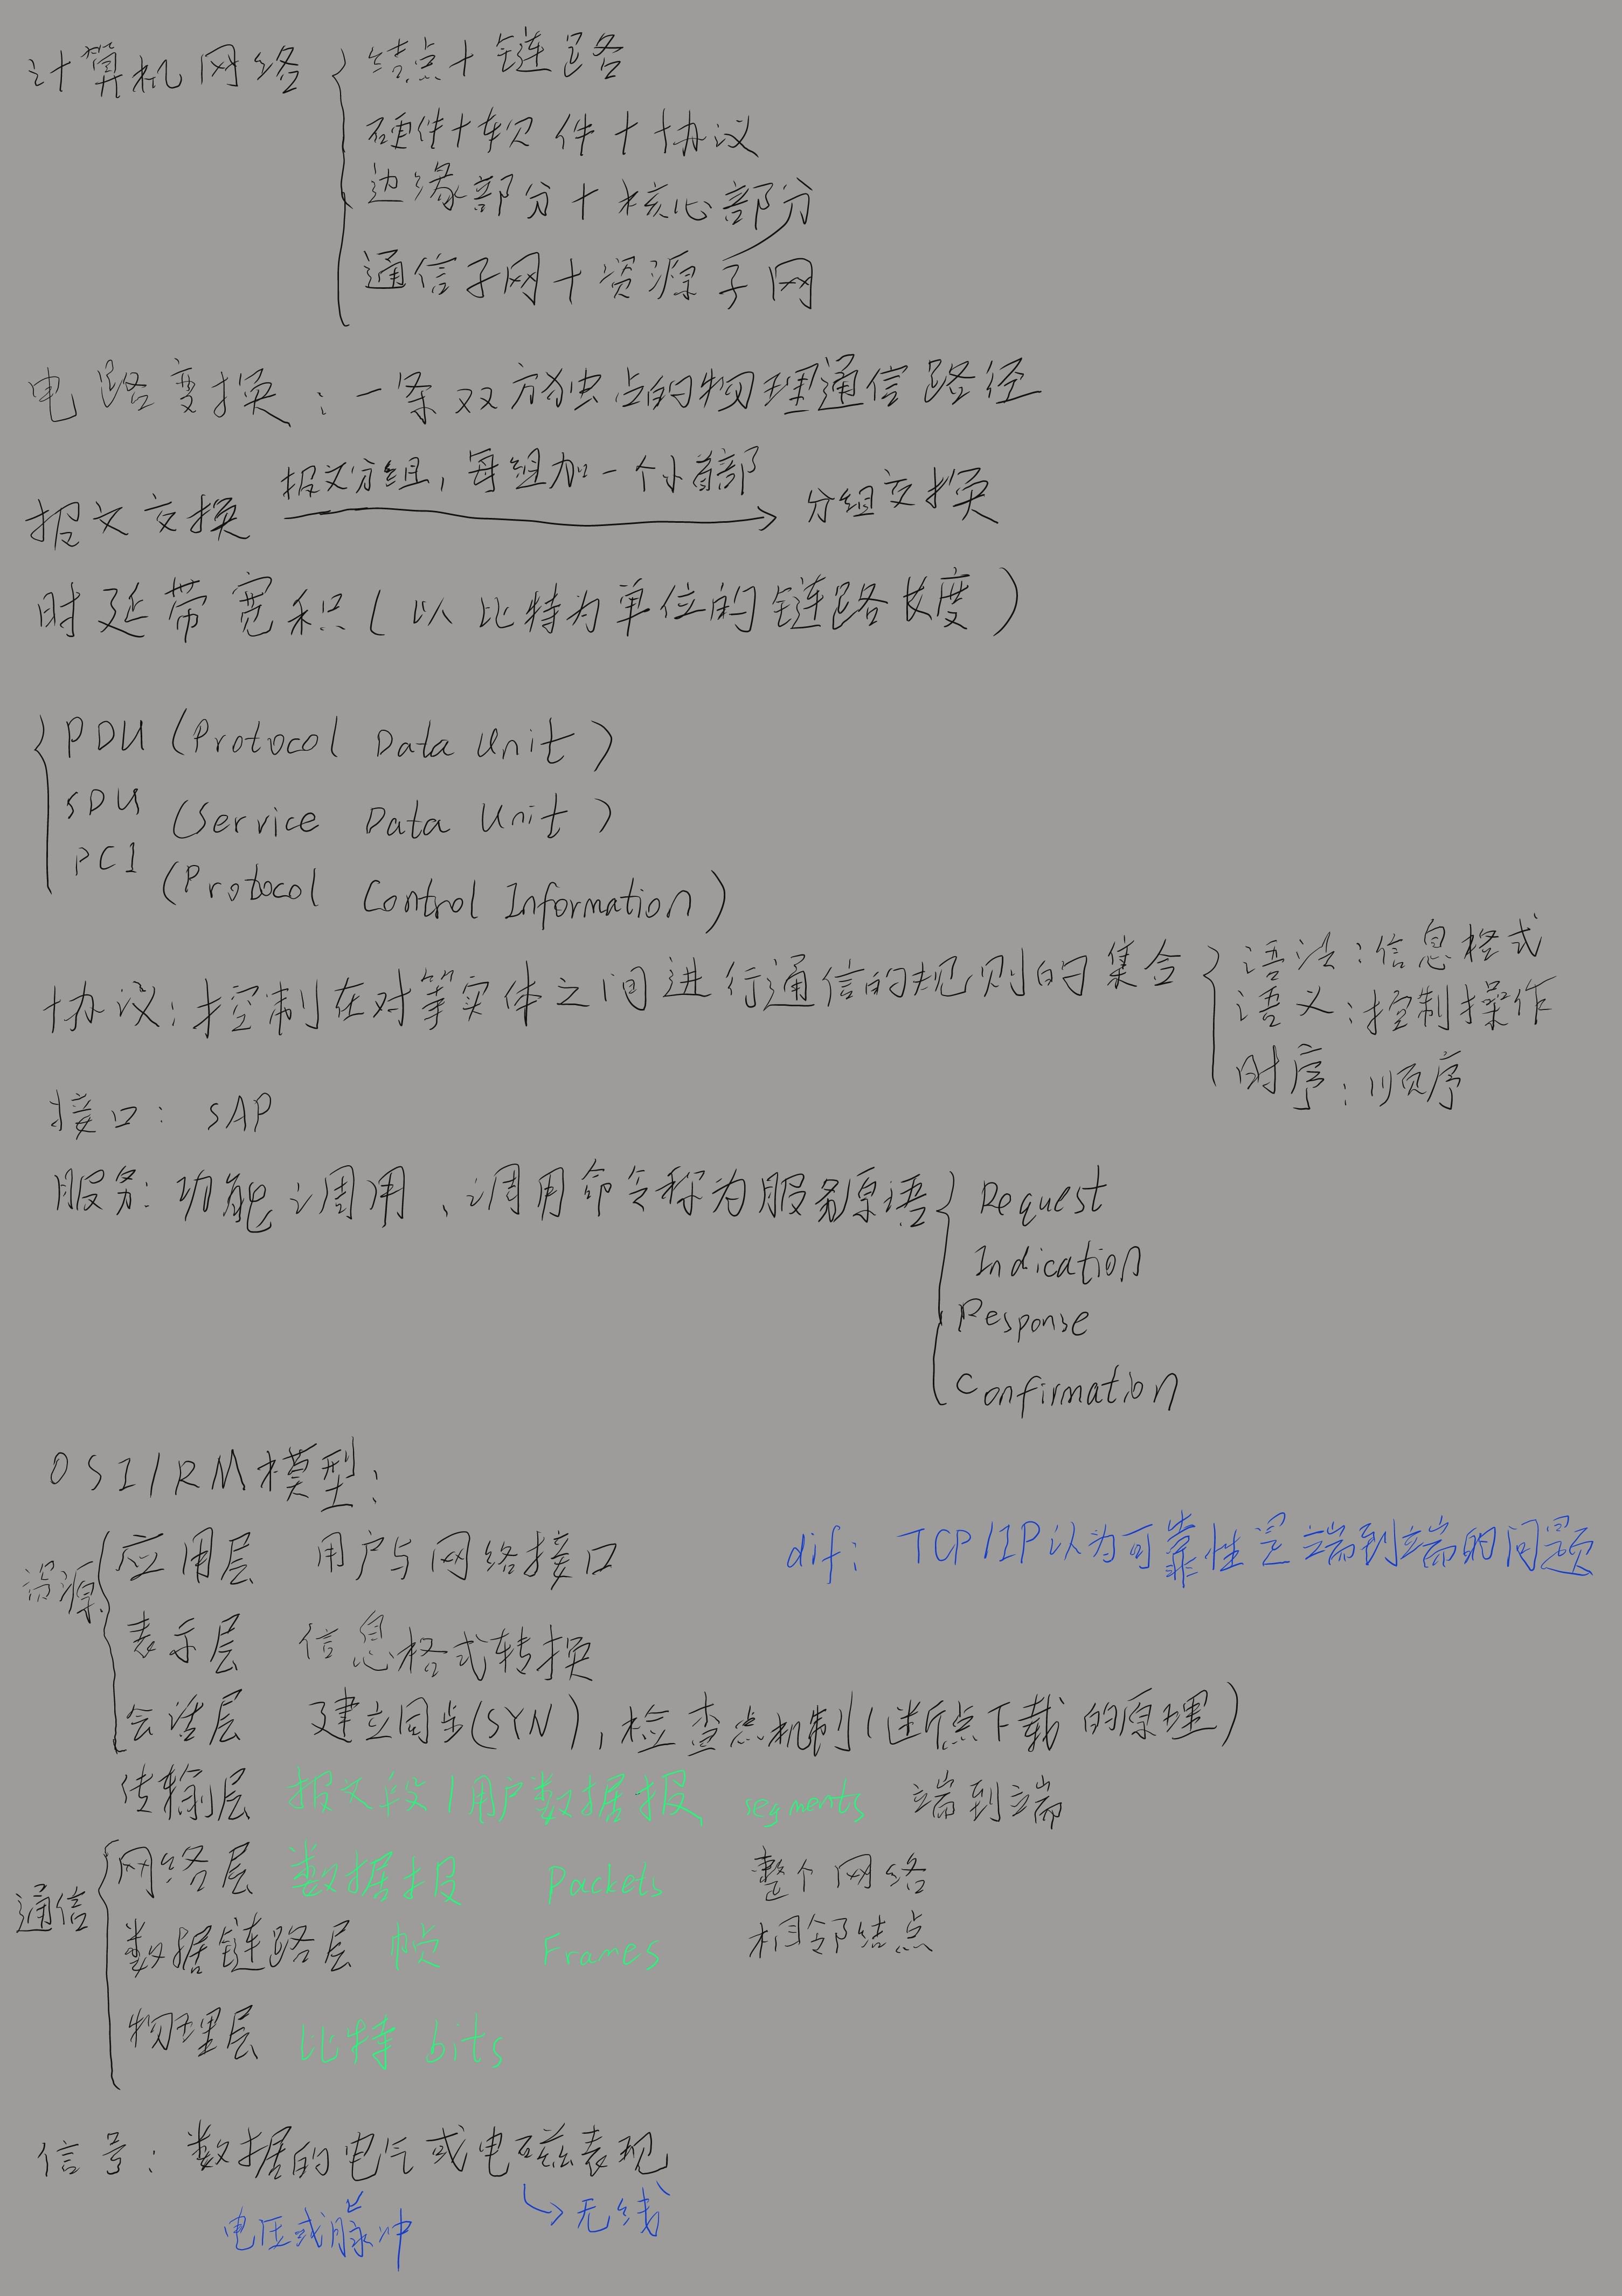 计算机网络 结点+链路
硬件+软件+协议
边缘部分+核心部分
通信子网+资源子网
电路变换：一条双方独占的物理通信路径
报文分组，每组加一个小首部
报文交换 → 分组交换
时延带宽积(以比特为单位的链路长度)
PDU (Protocol Data Unit)
SDU (Service Data Unit)
PCI (Protocol Control Information)
协议：控制在对等实体之间进行通信的规则的集合
语法：信息格式
语义：控制操作
时序：顺序
接口：SAP
服务：功能调用、调用命令称为服务原语
Request
Indication
Response
Confirmation
OSI/RM模型：
资源
应用层 用户与网络接口
dif：TCP/IP以为可靠性是端到端的问题
表示层 信息格式转换
会话层 建立同步(SYN)，检查点机制(断点下载的原理)
传输层 报文段/用户数据报 segments 端到端
通信
网络层 数据报 Packets 整个网络
数据链路层 帧 Frames 相邻结点
物理层 比特 bits
信号：数据的电气或电磁表现
电压或脉冲
→无线